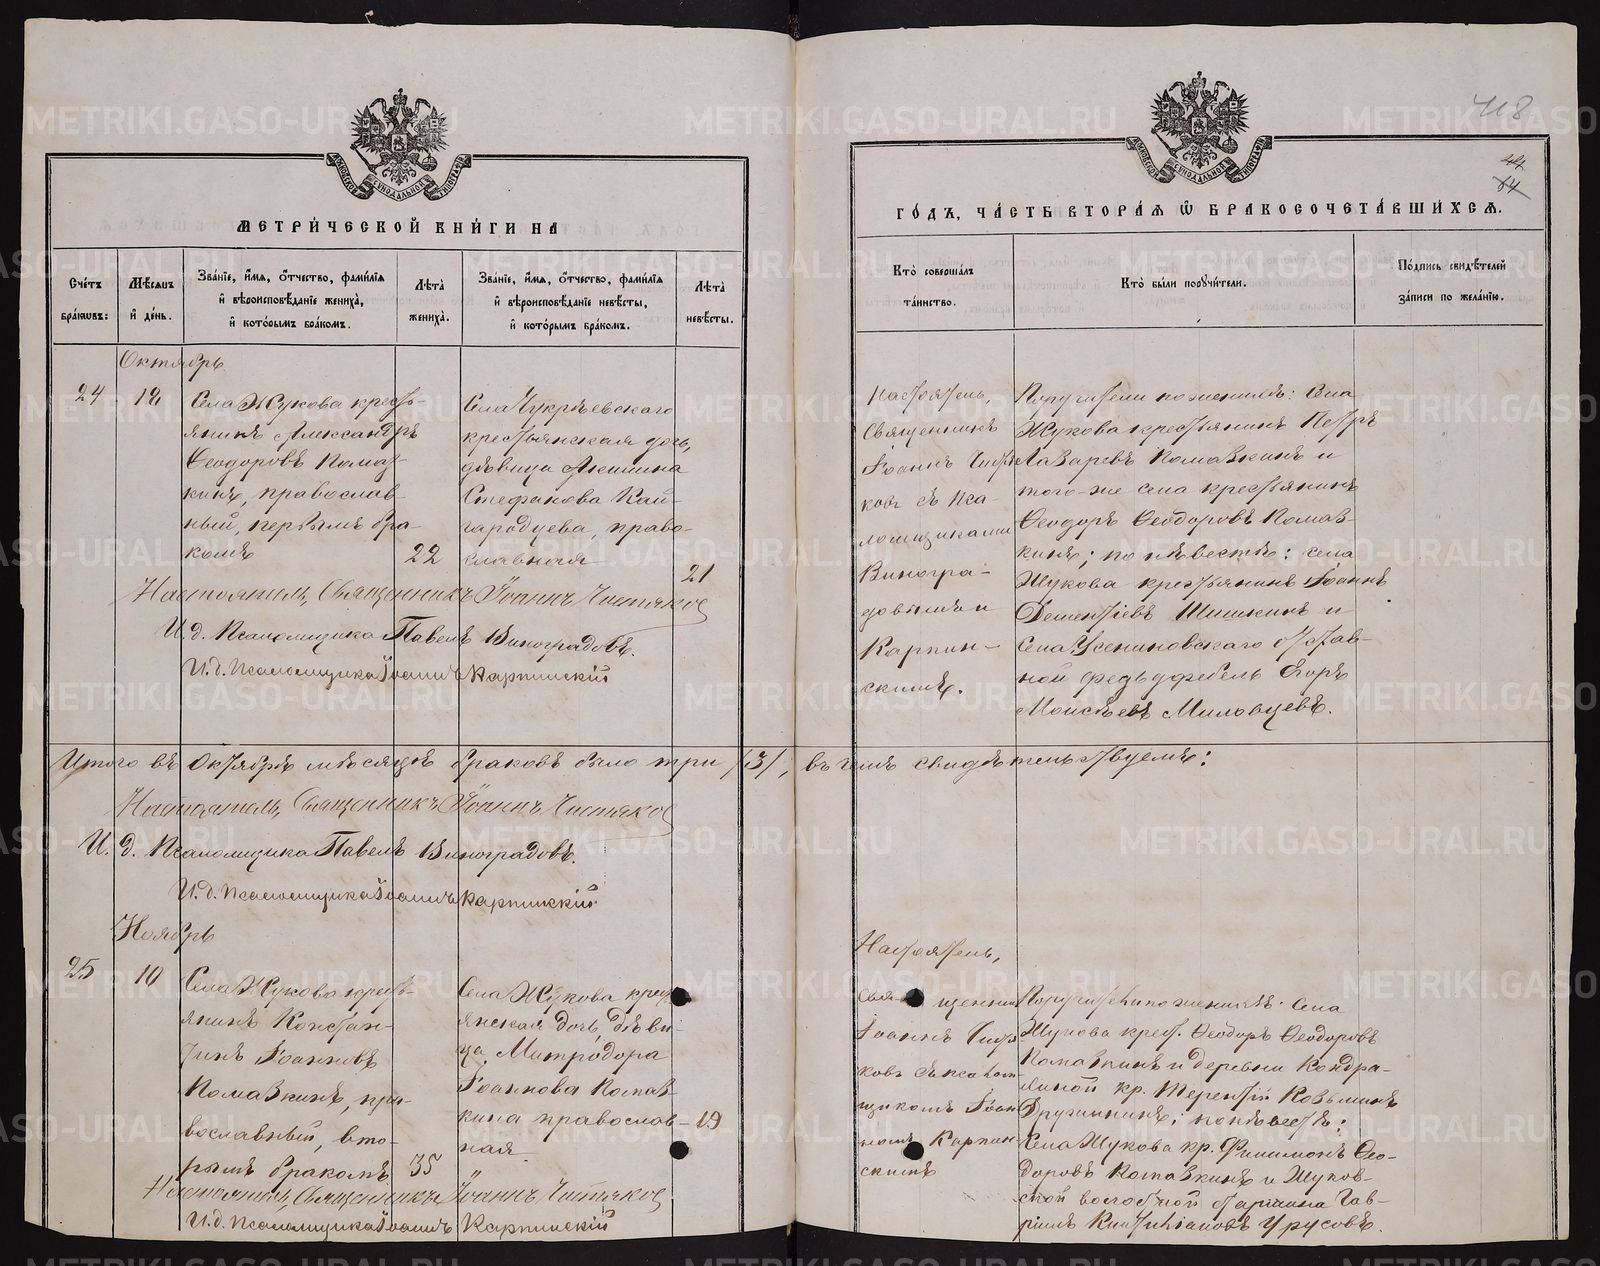 МЕТРИЧЕСКОЙ КНИГИ НА
Счетъ браковъ:
Мѣсяцъ и день.
Званіе, имя, отчество, фамилія и вѣроисповѣданіе жениха, и которымъ бракомъ.
Лѣта жениха.
Званіе, имя, отчество, фамилія и вѣроисповѣданіе невѣсты, и которымъ бракомъ.
Лѣта невѣсты.
Октябрь
24
12
Села Жукова кресть-
янинъ Александръ
Ѳеодоровъ Помаз-
кинъ, православ-
ный, первымъ бра
комъ
22
Села Чукрѣевскаго
крестьянская дочь,
дѣвица Акилина
Стефанова Кай-
гародцева, право-
славная
21
Настоятель, Священникъ Іоаннъ Чистяковъ
И. д. Псаломщика Павелъ Виноградовъ.
И. д. Псаломщика Іоаннъ Карпинскій
Итого въ Октябрѣ мѣсяцѣ браковъ было три /3/, въ чемъ свидѣтельствуемъ:
Настоятель, Священникъ Іоаннъ Чистяковъ
И. д. Псаломщика Павелъ Виноградовъ.
И. д. Псаломщика Іоаннъ Карпинскій
Ноябрь
25
10
Села Жукова кресть-
янинъ Констан-
тинъ Іоанновъ
Помазкинъ, пра-
вославный, вто-
рымъ бракомъ
35
Села Жукова крест
янская дочь, дѣви-
ца Митродора
Іоаннова Помаз-
кина православ-
ная
19
Настоятель, Священникъ Іоаннъ Чистяковъ
И. д. Псаломщика Іоаннъ Карпинскій
418
44
64
ГОДЪ, ЧАСТЬ ВТОРАЯ Ѿ БРАКОСОЧЕТАВШИХСЯ.
Кто совершалъ таинство.
Кто были поручители.
Подпись свидѣтелей записи по желанію.
Настоятель,
Священникъ
Іоаннъ Чистя
ковъ съ Пса-
ломщиками
Виногра-
довымъ и
Карпин-
скимъ.
Поручители по женихѣ: Села
Жукова крестьянинъ Петръ
Лазаревъ Помазкинъ и
того-же села крестьянинъ
Ѳеодоръ Ѳеодоровъ Помаз-
кинъ; по невѣстѣ: села
Жукова крестьянинъ Іоаннъ
Дементіевъ Шишкинъ и
Села Усениновскаго отстав-
ной фельдфебель Егоръ
Моисѣевъ Миловцевъ.
Настоятель,
Свя щенник
Іоаннъ Чистя
ковъ съ псалом-
щикомъ Іоан
номъ Карпин-
скимъ
Поручители по женихѣ: Села
Жукова крест. Ѳеодоръ Ѳеодоровъ
Помазкинъ и деревни Кондра-
линой кр. Терентій Козьминъ
Дружининъ; по невѣстѣ:
Села Жукова кр. Филимонъ Ѳео-
доровъ Помазкинъ и Жуков-
ской волостной старшина Гав-
ріилъ Кинтиліановъ Урусовъ.
METRIKI.GASO-URAL.RU